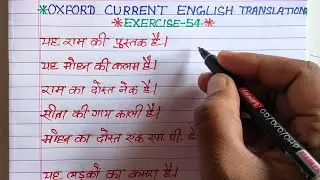 *OXFORD CURRENT ENGLISH TRANSLATION
*EXERCISE-54*
यह राम की पुस्तक है।
यह मोहन की कलम है।
राम का दोस्त नेक है।
सीता की गाय काली है।
मोहन का दोस्त एक एम. पी. है
यह लड़कों का कमरा है।